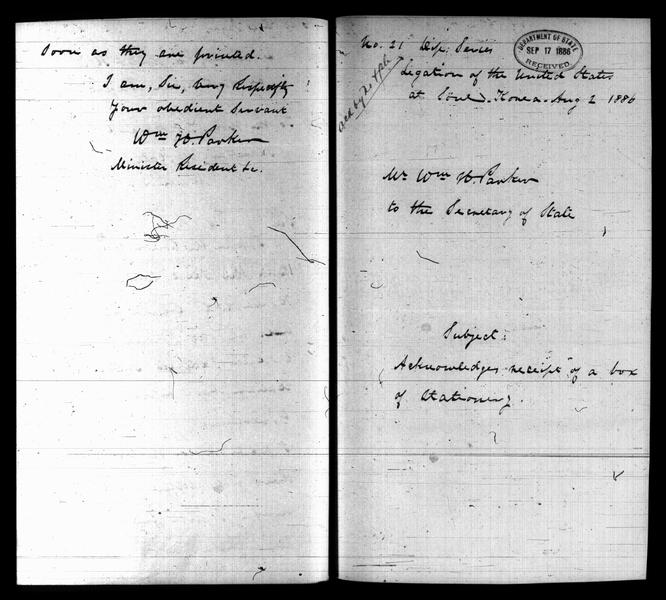 soon as they are printed.
I am, Sir, Very Respectfy
Your obedient Servant
Wm H. Parker
Minister Resident &c.
No. 21 Dip. Series
DEPARTMENT OF STATE
SEP 17 1886
RECEIVED
Legation of the United States
at Söul. Korea. Aug 2 1886
Mr Wm H. Parker
to the Secretary of State
Subject:
Acknowledges receipt of a box
of Stationery.